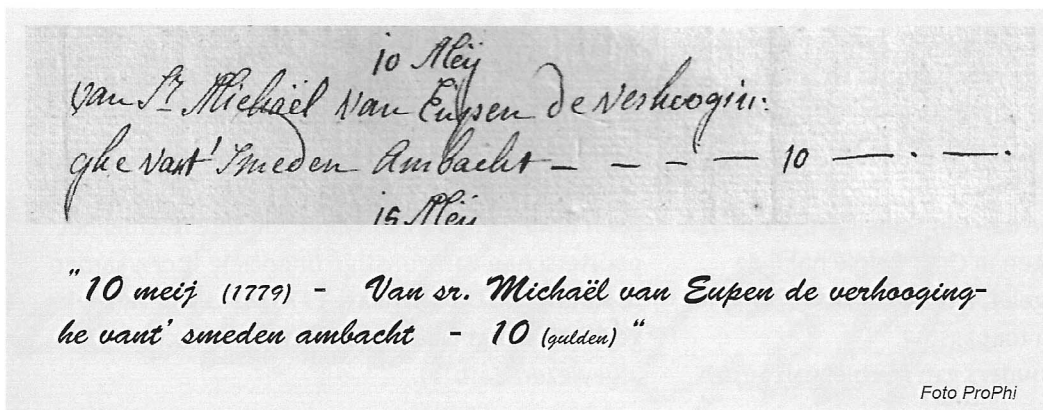 10 Meij
van Sr Michaël van Eupen de verhoogin:
ghe vant' smeden Ambacht – – – — 10 — . — .
15 Meij
" 10 meij (1779) - Van sr. Michaël van Eupen de verhooging-
he vant' smeden ambacht - 10 (gulden) "
Foto ProPhi